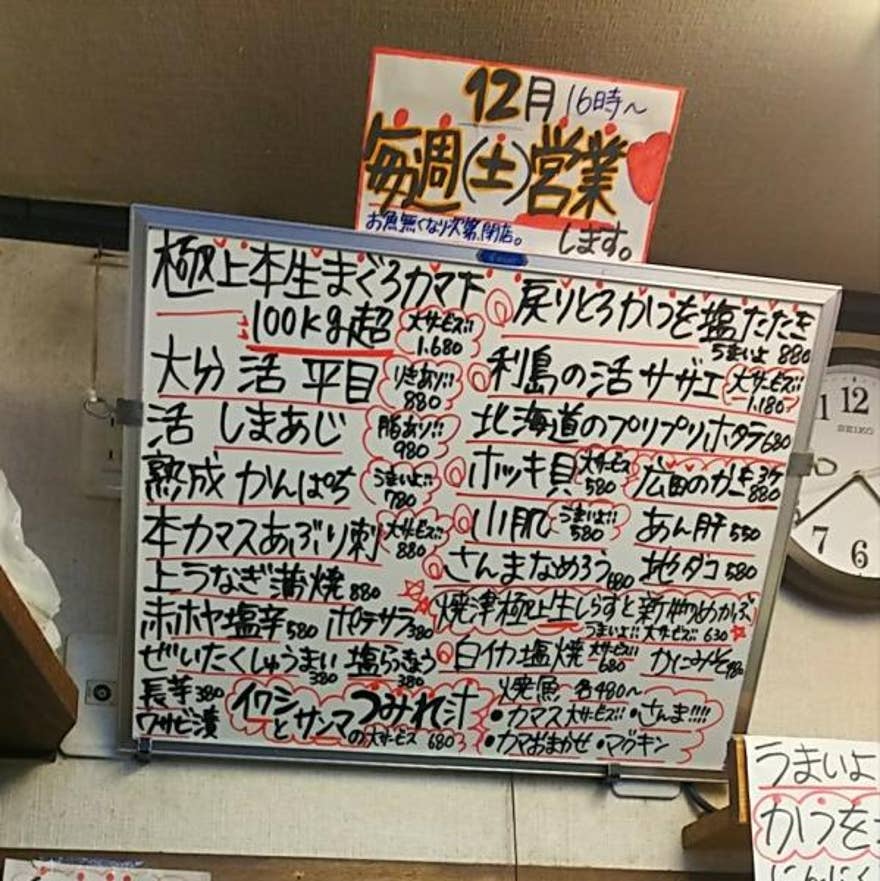 12月 16時～
毎週(土)営業
お魚無くなり次第、閉店。 します。
極上本生まぐろカマト
100kg超 大サービス!! 1,680
大分 活 平目 りきあり!! 880
活 しまあじ 脂あり!! 980
熟成 かんぱち うまいよ!! 780
本カマスあぶり刺 大サービス!! 880
上うなぎ蒲焼 880
赤ホヤ塩辛 580 ポテサラ 380
ぜいたくしゅうまい 380 塩らっきょう 380
長芋 380
ワサビ漬
イワシとサンマのつみれ汁 大サービス 680
戻りとろかつを塩たたき
うまいよ 880
利島の活サザエ 大サービス!! 1,180
北海道のプリプリホタテ 680
ホッキ貝 大サービス 580 広田のかき 3ケ 880
うまいよ!! 580 あん肝 550
さんまなめろう 680 地ダコ 580
焼津極上生しらすと新物めかぶ
うまいよ!! 大サービス!! 630
白イカ塩焼 大サービス!! 680 かにみそ 480
焼魚 各480～
・カマス大サービス!! ・さんま!!!!
・カマおまかせ ・マグキン
SEIKO
12
1
7
6
うまいよ
かつを
にんにく